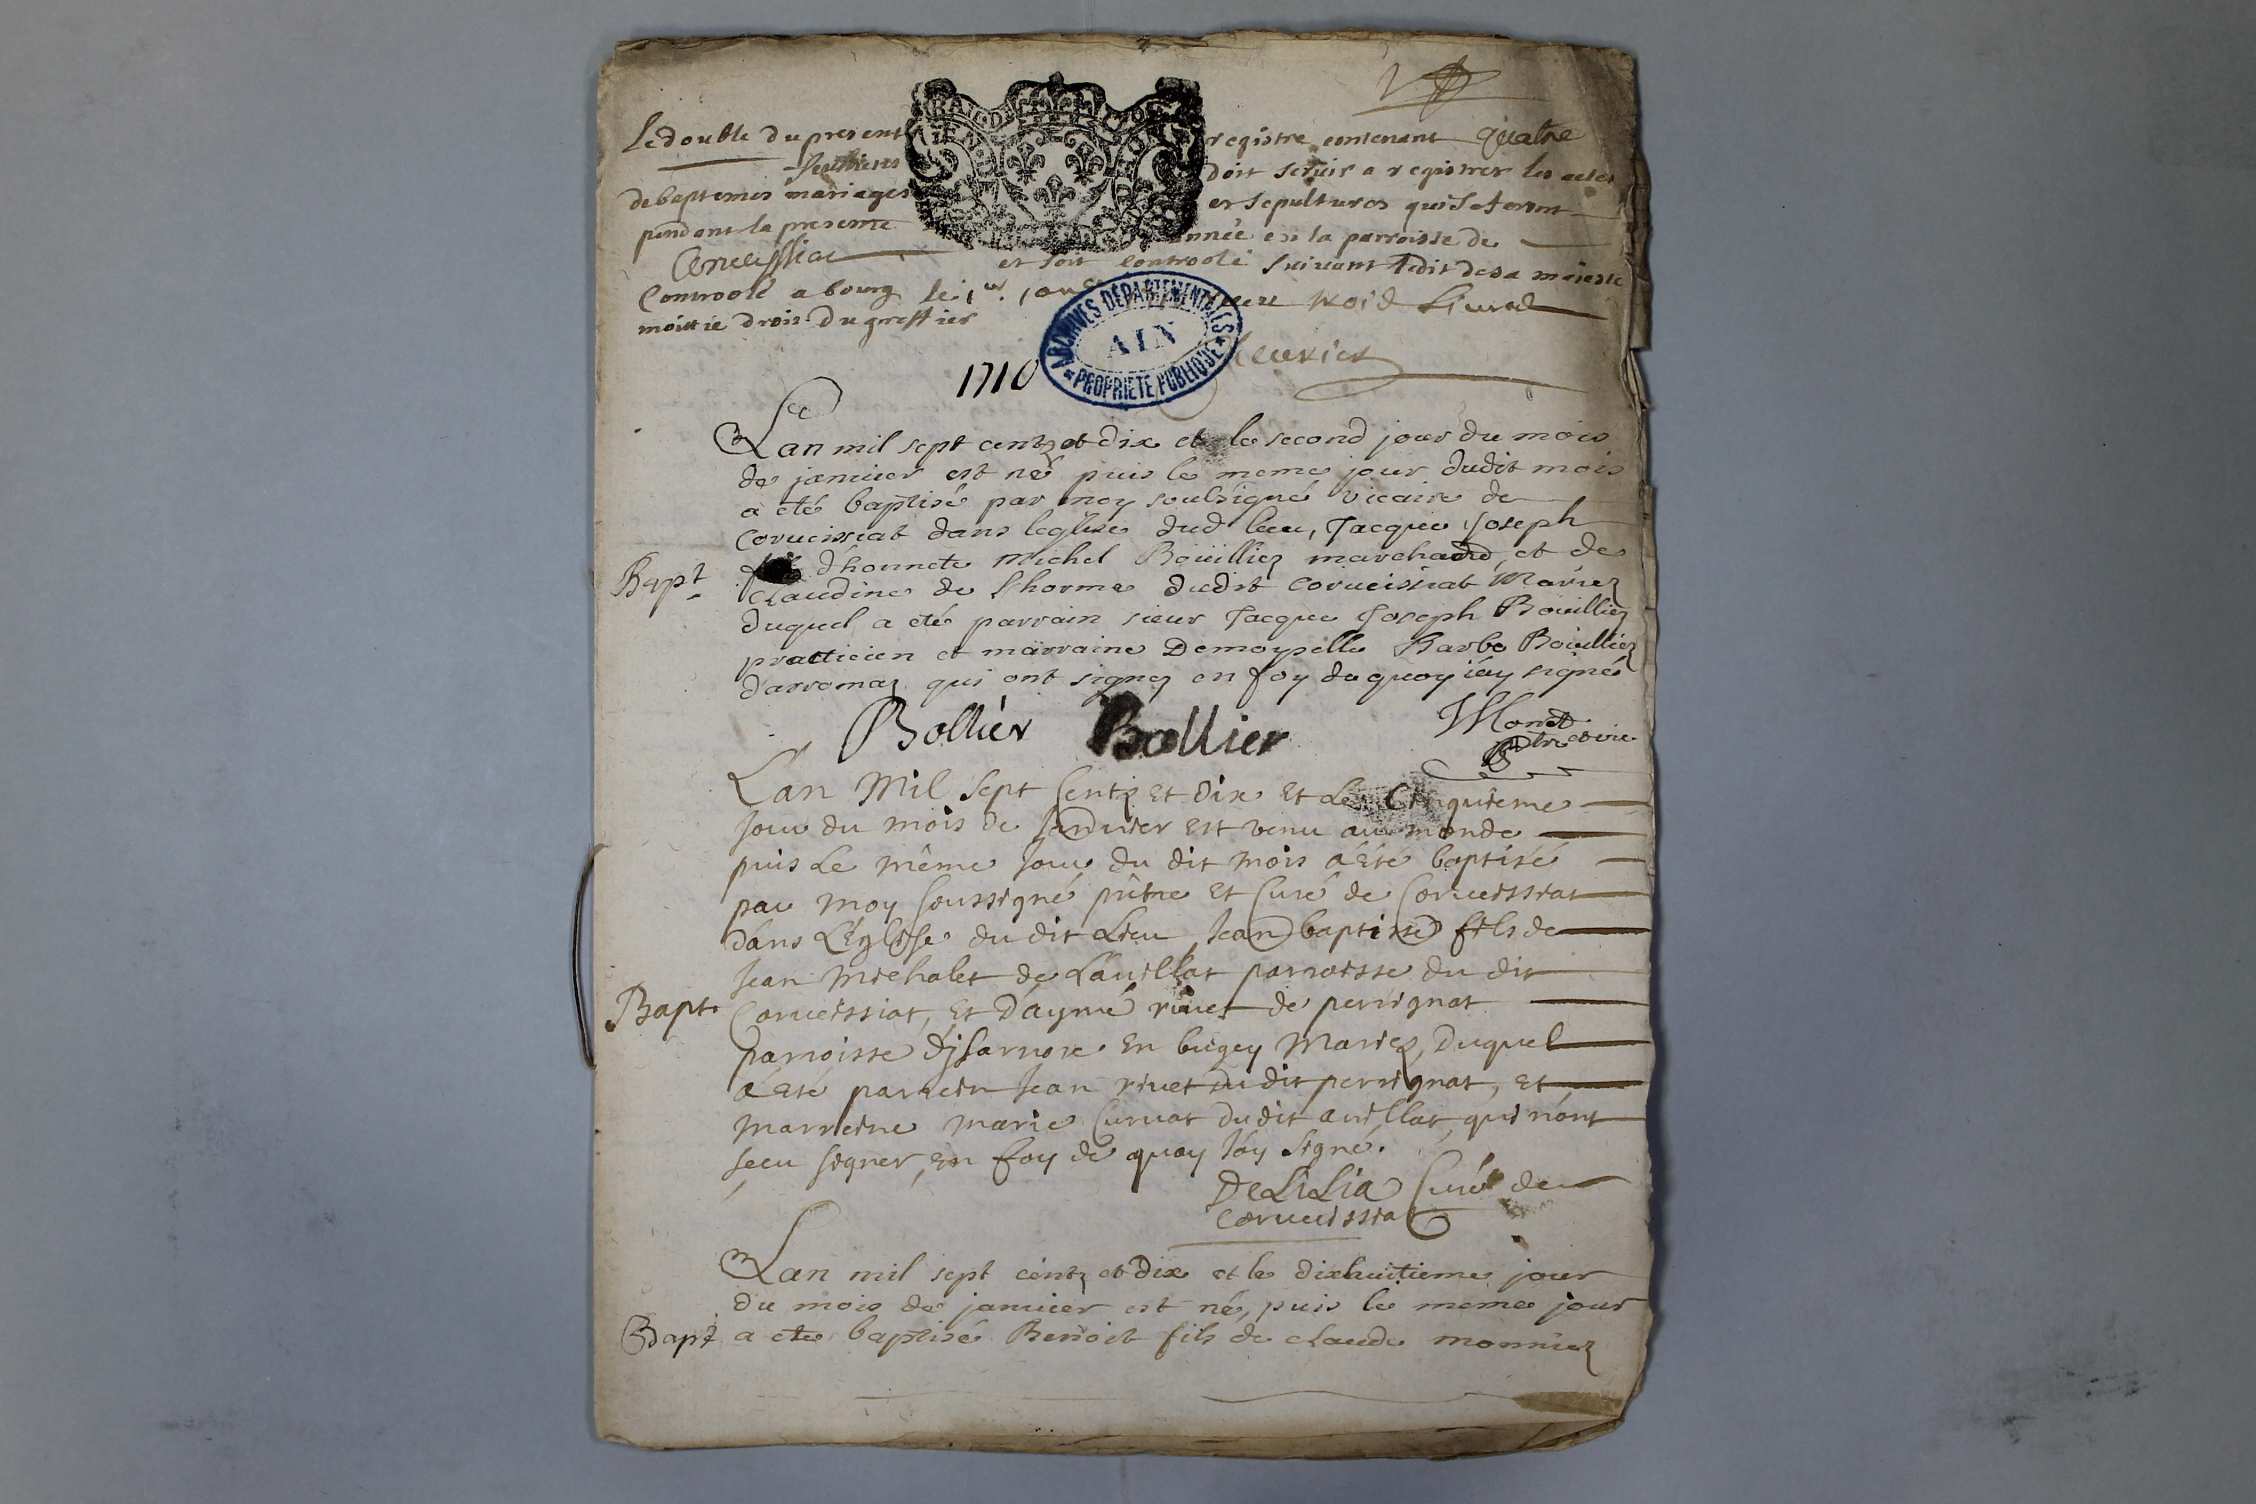 Le double du present registre contenant quatre
feuilliets doit seruir a registrer les actes
de baptemes mariages et sepultures qui se feront
pendant la presente année en la parroisse de
Corueissiat et soit controolé suiuant ledit de sa majesté
Controolé a bourg le 1er. trois liures
moittie droit du greffier
1710
ARCHIVES DEPARTEMENTALES
AIN
PROPRIETE PUBLIQUE
Lan mil sept centz et dix et le second jour du mois
de januier est né puis le meme jour dudit mois
a eté baptisé par moy soubsigné vicaire de
Corueissiat dans leglise dud lieu, Jacque Joseph
Bapt. fils d'honnete Michel Bouillier marchand, et de
Claudine de Lhorme dudit Corueissiat Mariez
duquel a eté parrain sieur Jacque Joseph Bouillier
practicien et marraine Demoyselle Barbe Bouillier
d'arromaz qui ont signez en foy de quoy iay signé
Bollier Bollier Monet
ptre et vic
L'an Mil Sept Centz Et dix Et Le Cinquieme
jour du mois de januier Est venu au monde
puis Le même jour du dit mois a Eté baptisé
par moy soussigné prêtre Et Curé de Corueissiat
dans L'Eglise du dit Lieu Jean baptiste fils de
Jean Michalet de L'auillat parroisse du dit
Bapt. Corueissiat, Et D'aymé riuet de perrignat
parroisse d'jsarnore En bugey Mariez, Duquel
a Eté parrein Jean riuet du dit perrignat, Et
Marreine Marie Curuat du dit auillat, qui n'ont
sceu signer, En foy de quoy j'ay signé.
DeLiLia Curé de
Corueissia
Lan mil sept centz et dix et le dixhuitieme jour
du mois de januier est né, puis le meme jour
Bapt. a ete baptisé Benoit fils de Claude monnier